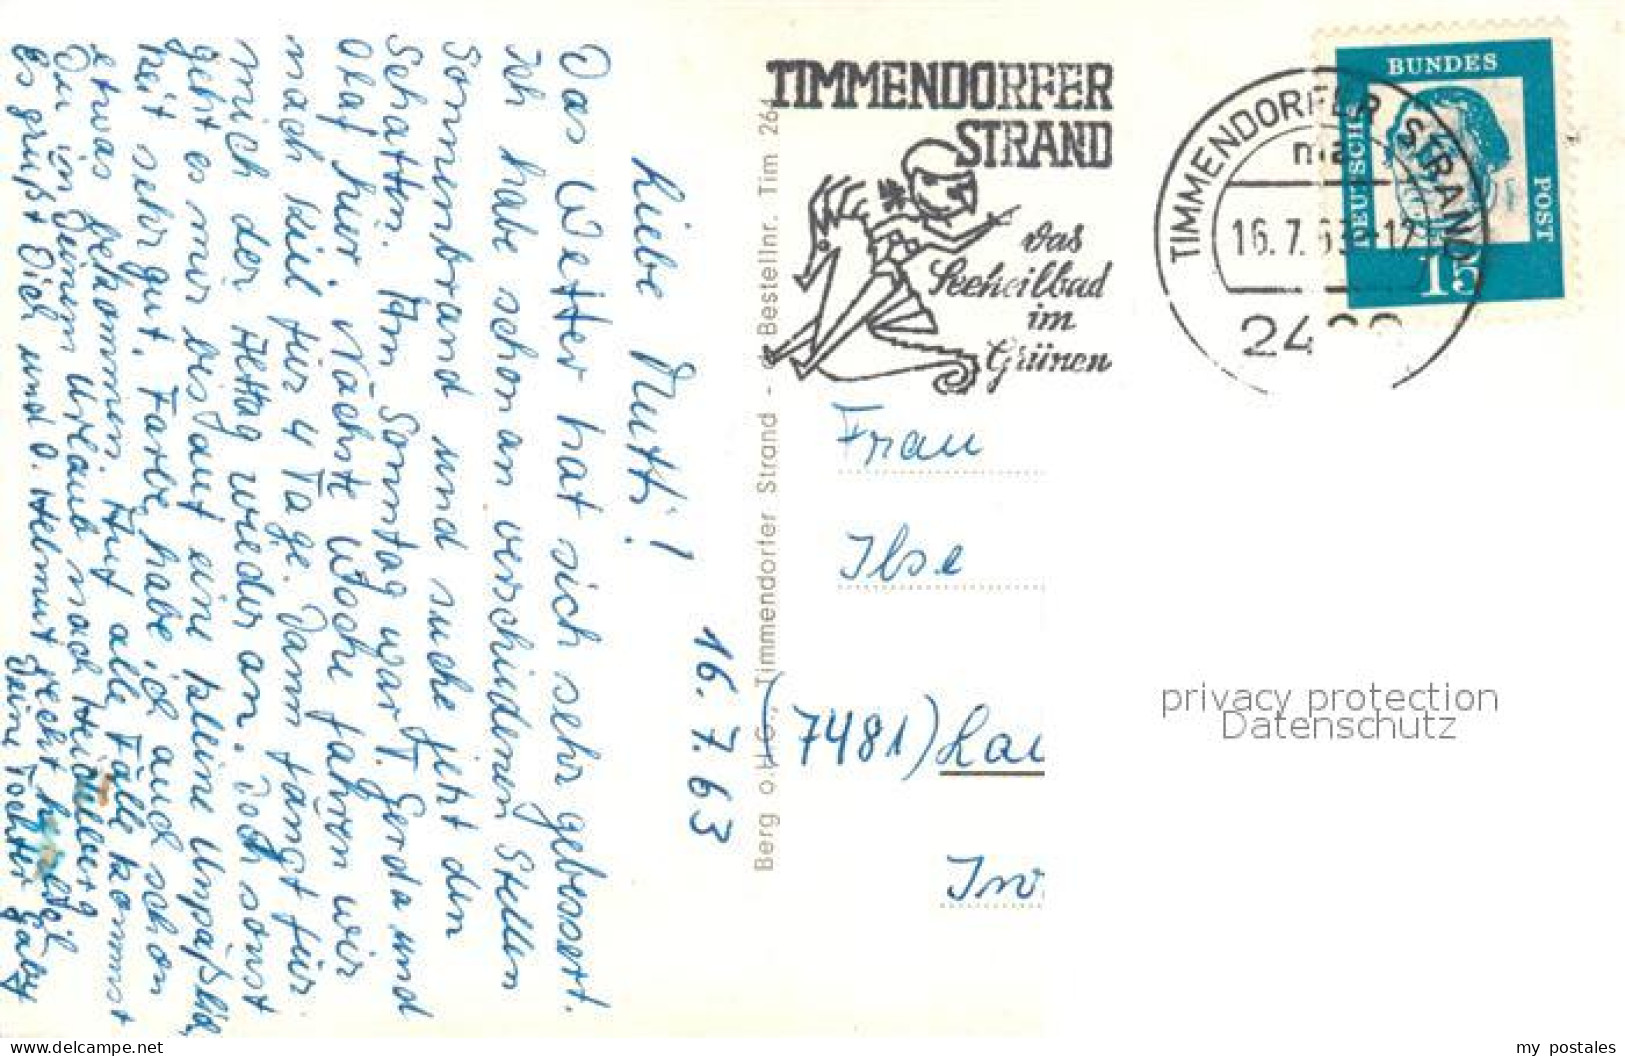 16.7.63
Liebe Mutti!
Das Wetter hat sich sehr gebessert.
Ich habe schon an verschiedenen Stellen
Sonnenbrand und suche jetzt den
Schatten. Am Sonntag war T. Gerda und
Olaf hier. Nächste Woche fahren wir
nach Kiel für 4 Tage. Dann fängt für
mich der Alltag wieder an. Doch sonst
geht es mir bis auf eine kleine
Zeit sehr gut. Farbe habe ich auch schon
etwas bekommen. Auf alle Fälle kommst
Du in Deinem Urlaub nach Heidelberg
Es grüßt Dich und O. Helmut recht herzlich
Deine Tochter Gaby
Berg o.H.G., Timmendorfer Strand - Bestellnr. Tim 264
TIMMENDORFER
STRAND
das
Seeheilbad
im
Grünen
TIMMENDORFER STRAND
ma
16.7.63-12
24
DEUTSCHE
BUNDES
POST
15
Frau
Ilse
(7481) Lau
Inv
privacy protection
Datenschutz
www.delcampe.net
my_postales